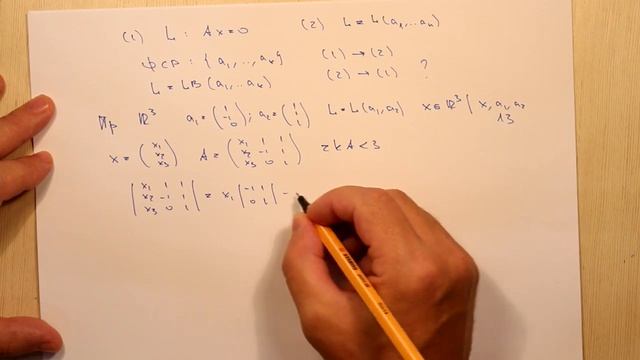 (1) L : Ax=0 (2) L = L(a₁,...,aₖ)
ФСР : {a₁,...,aₖ} (1) → (2)
L = LB(a₁,...,aₖ) (2) → (1) ?
Пр ℝ³ a₁ = (1 -1 0) ; a₂ = (1 1 1) L = L(a₁,a₂) x ∈ ℝ³ | x, a₁, a₂
ЛЗ
x = (x₁ x₂ x₃) A = (x₁ 1 1 x₂ -1 1 x₃ 0 1) rk A < 3
|x₁ 1 1 x₂ -1 1 x₃ 0 1| = x₁ |-1 1 0 1| -